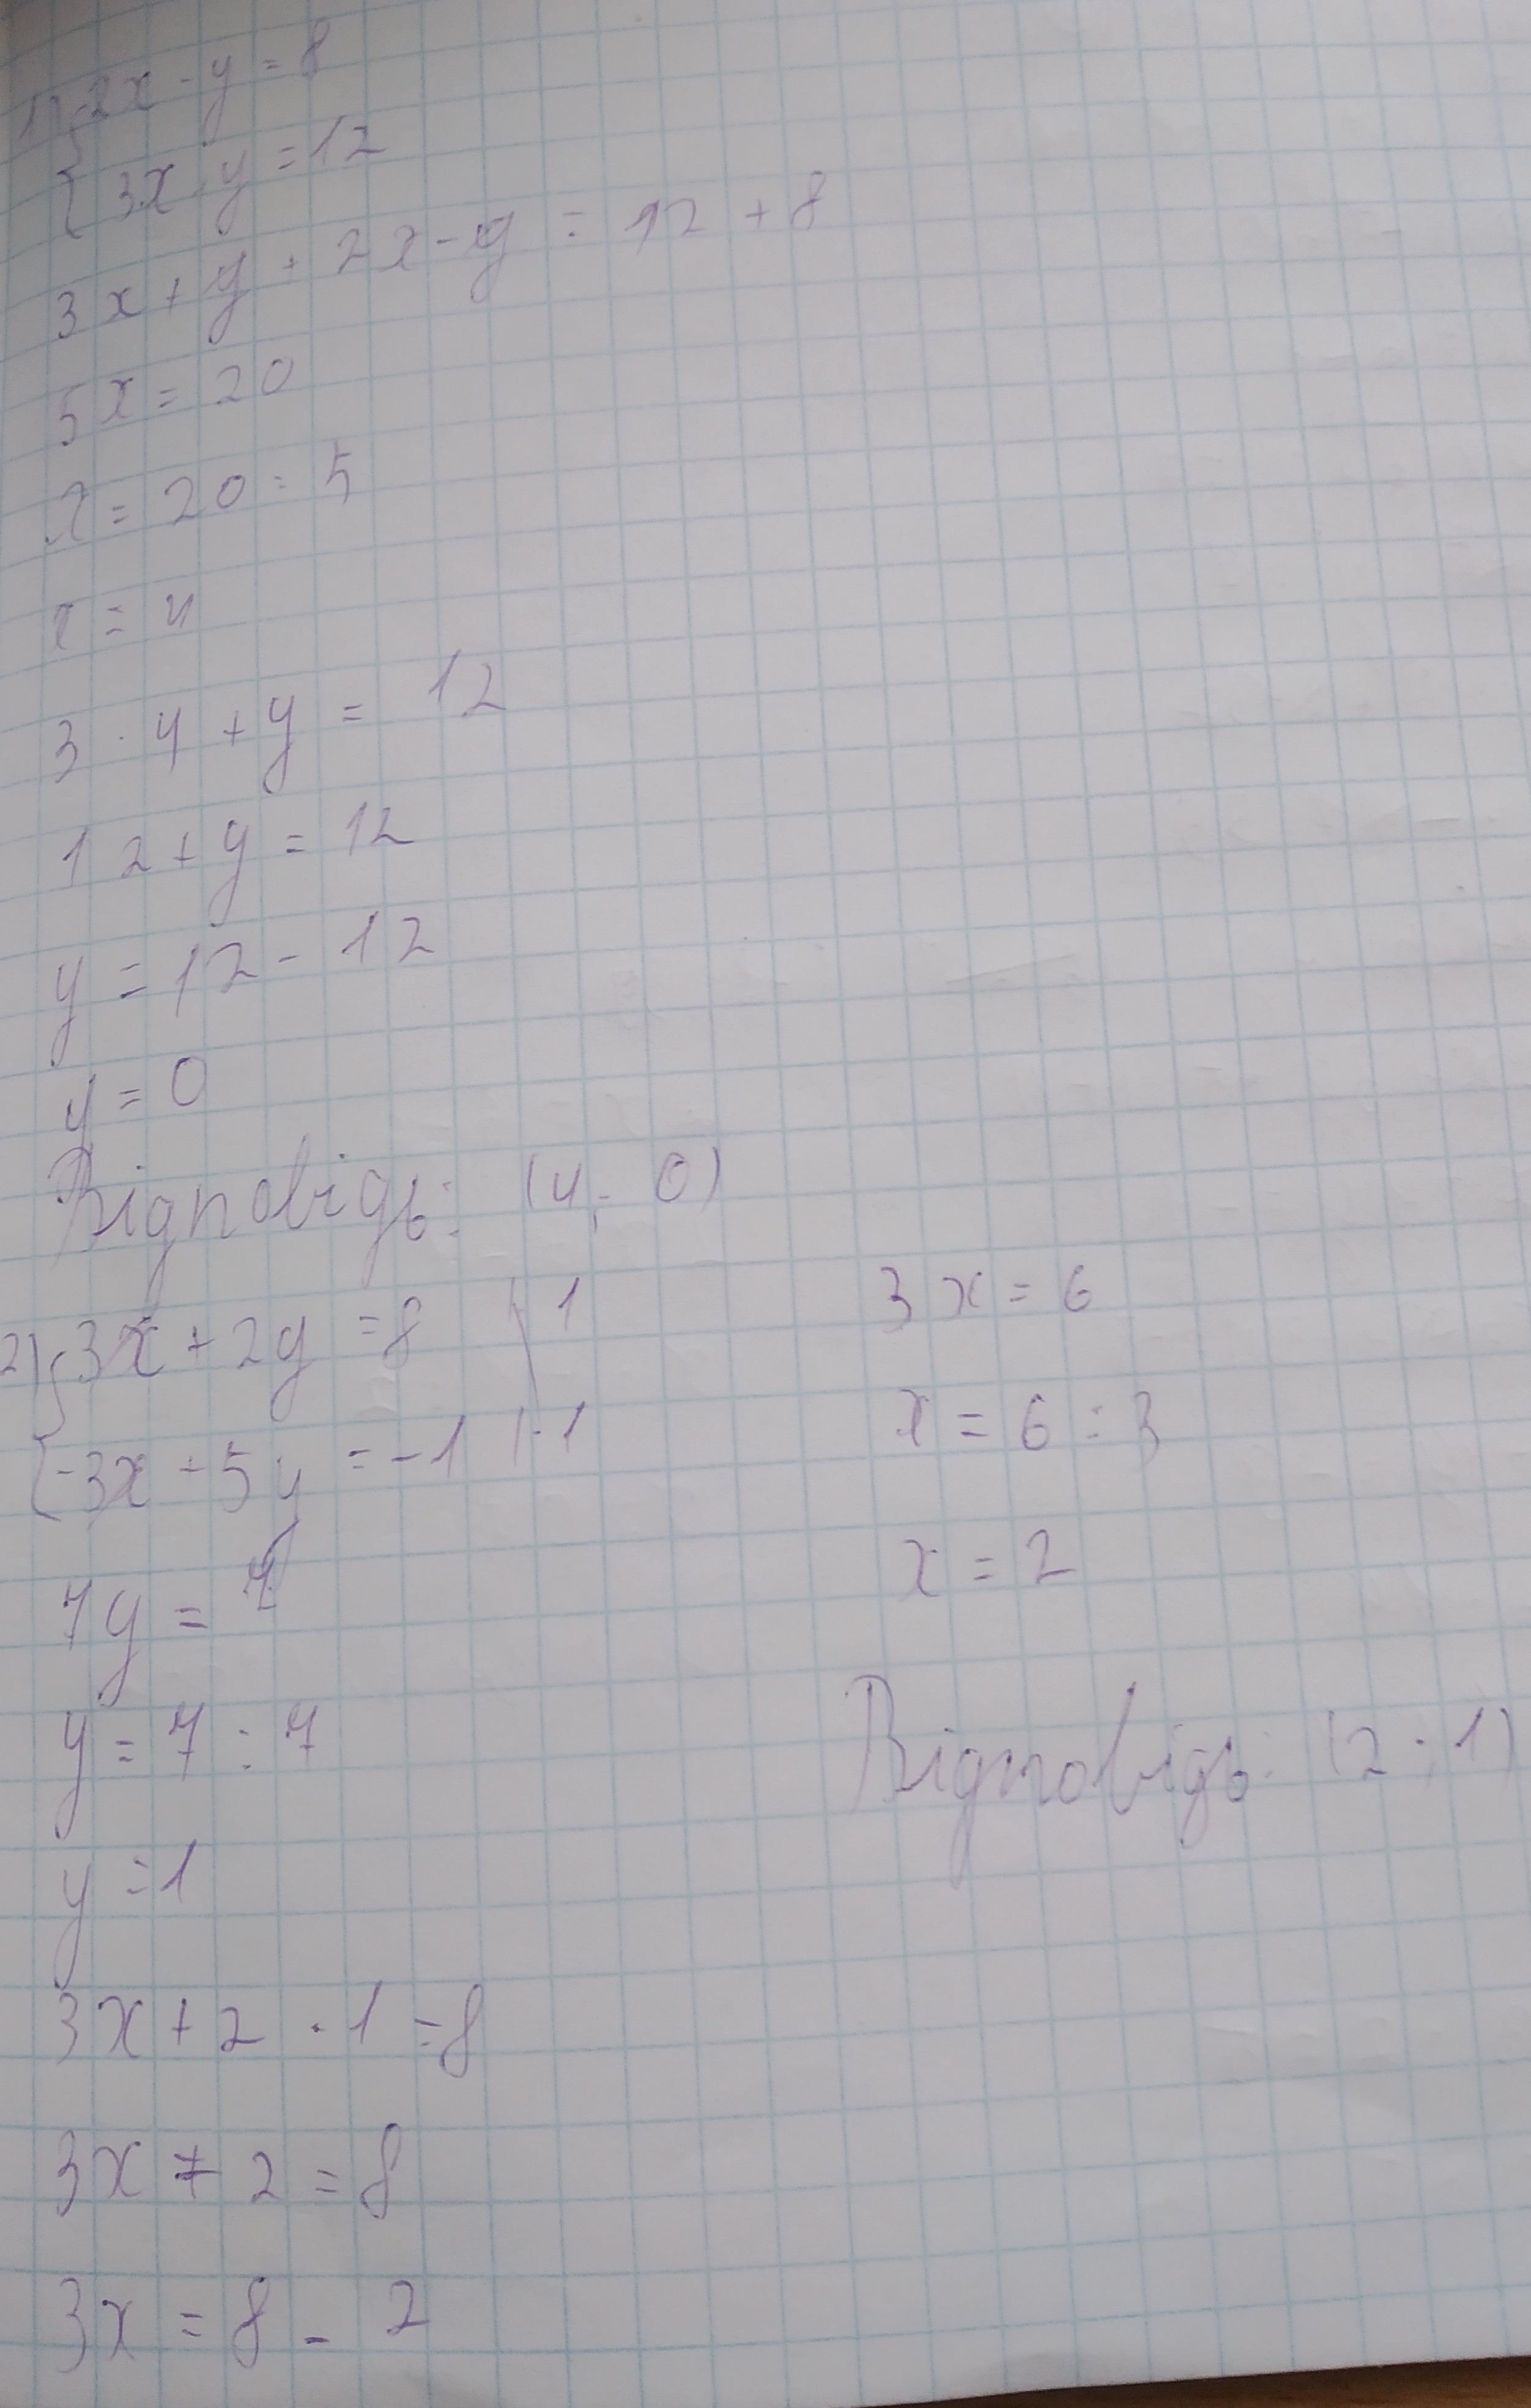 1) { 2x - y = 8
{ 3x + y = 12
3x + y + 2x - y = 12 + 8
5x = 20
x = 20 : 5
x = 4
3 · 4 + y = 12
12 + y = 12
y = 12 - 12
y = 0
Відповідь: (4; 0)
2) { 3x + 2y = 8 | 1
{ -3x + 5y = -1 | · 1
7y = 7
y = 7 : 7
y = 1
3x + 2 · 1 = 8
3x + 2 = 8
3x = 8 - 2
3x = 6
x = 6 : 3
x = 2
Відповідь: (2; 1)